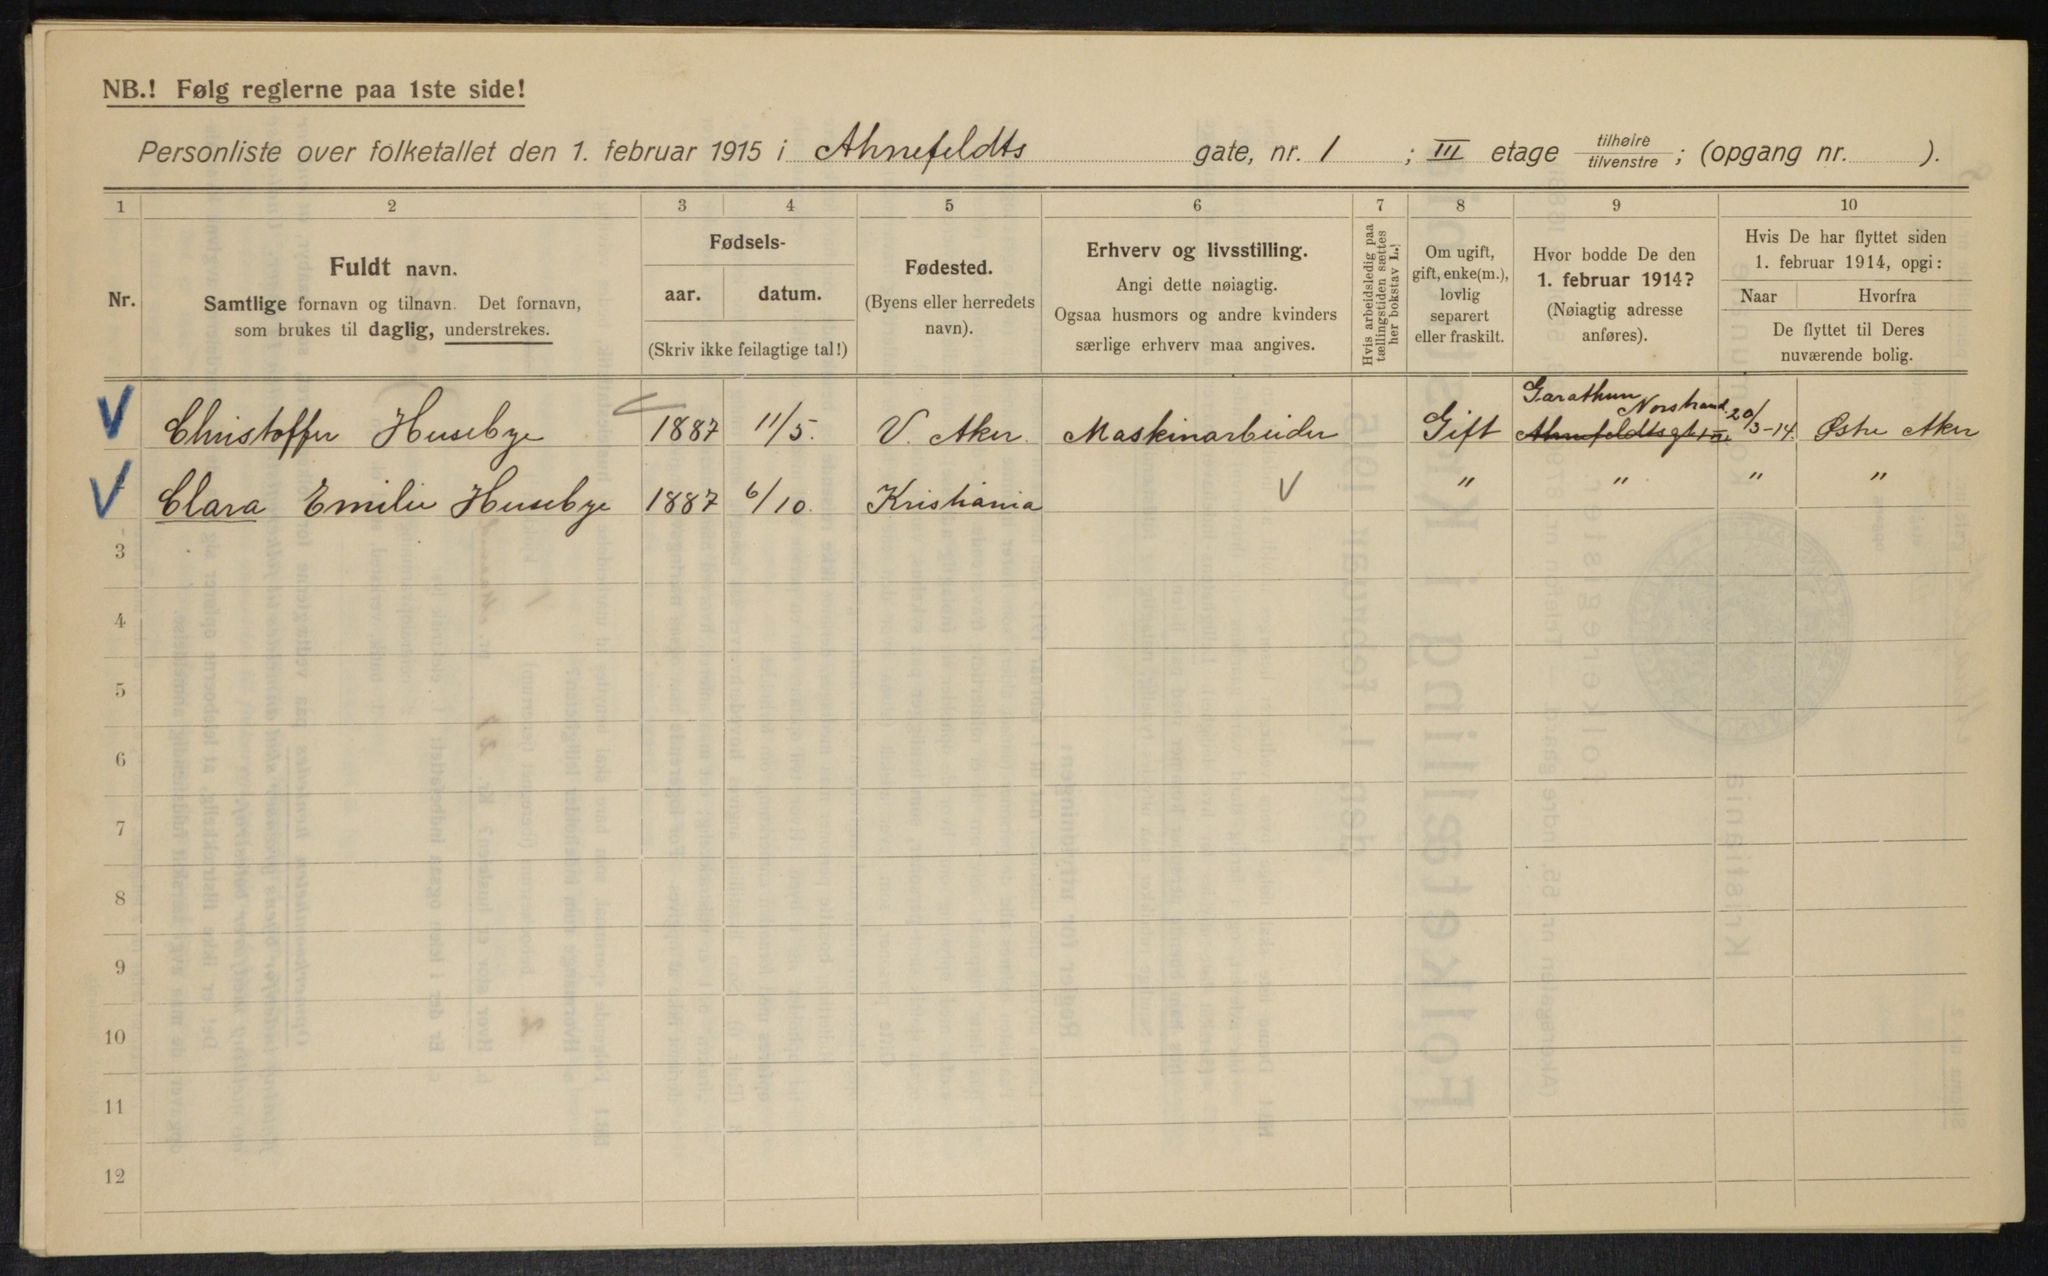 NB.! Følg reglerne paa 1ste side!
Personliste over folketallet den 1. februar 1915 i Ahnefeldts gate, nr. 1 ; III etage tilhøire / tilvenstre ; (opgang nr. ).
1 2 3 4 5 6 7 8 9 10
Nr.
Fuldt navn.
Samtlige fornavn og tilnavn. Det fornavn,
som brukes til daglig, understrekes.
Fødsels-
aar. datum.
(Skriv ikke feilagtige tal!)
Fødested.
(Byens eller herredets
navn).
Erhverv og livsstilling.
Angi dette nøiagtig.
Ogsaa husmors og andre kvinders
særlige erhverv maa angives.
Hvis arbeidsledig paa
tællingstiden sættes
her bokstav L.
Om ugift,
gift, enke(m.),
lovlig
separert
eller fraskilt.
Hvor bodde De den
1. februar 1914?
(Nøiagtig adresse
anføres).
Hvis De har flyttet siden
1. februar 1914, opgi:
Naar Hvorfra
De flyttet til Deres
nuværende bolig.
Christoffer Husebye 1887 11/5. V. Aker. Maskinarbeider Gift Norstrand Ahnefeldtsgt 20/3-14. Østre Aker
Clara Emilie Husebye 1887 6/10. Kristiania " " " "
3
4
5
6
7
8
9
10
11
12